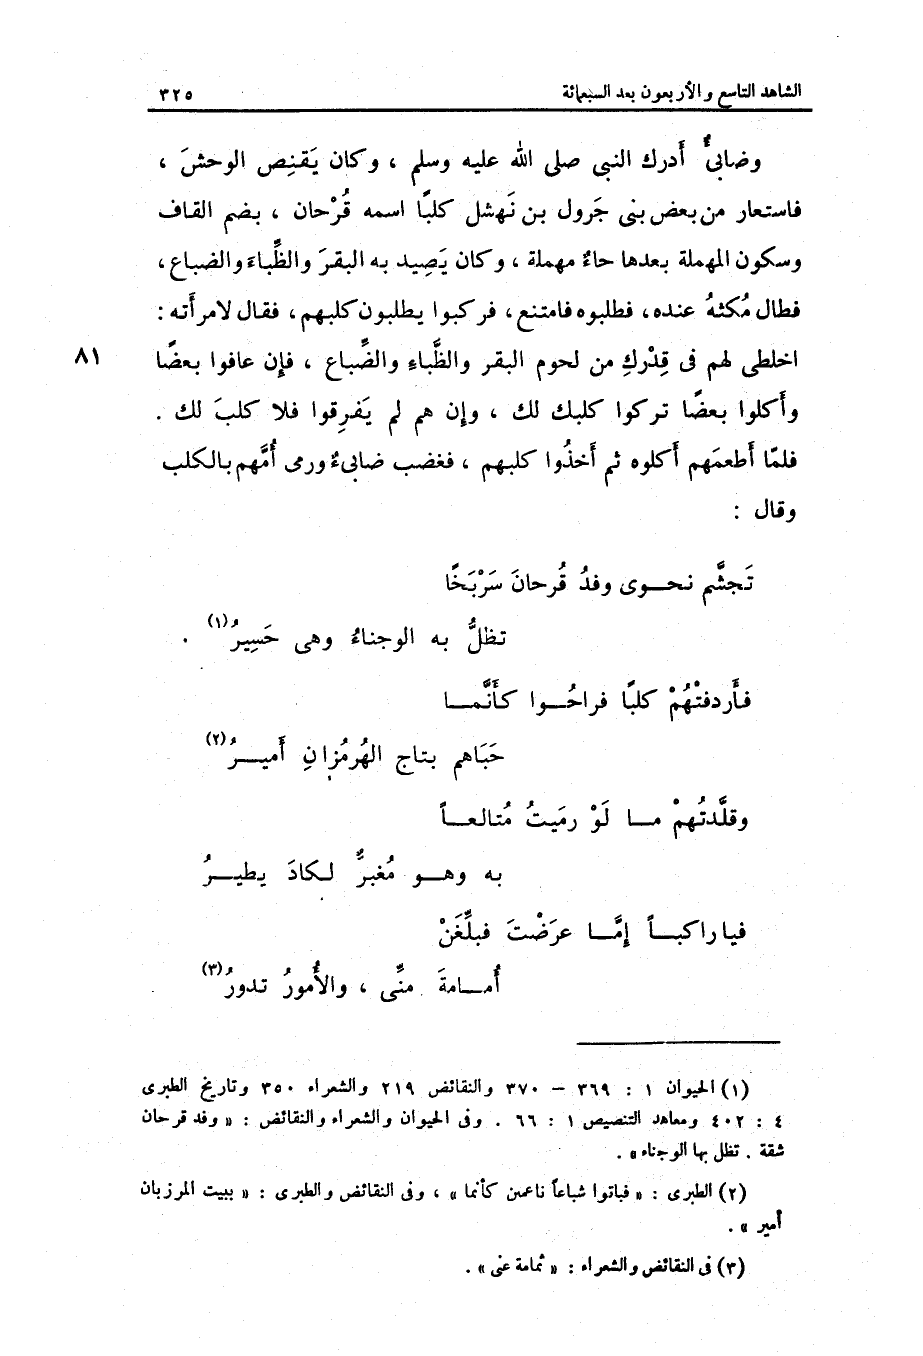 الشاهد التاسع والأربعون بعد السبعمائة ٣٢٥
وضابىٌٔ أدرك النبي صلى الله عليه وسلم ، وكان يَقنِص الوحشَ ،
فاستعار من بعض بنى جَرول بن نَهشل كلبًا اسمه قُرْحان ، بضم القاف
وسكون المهملة بعدها حاءٌ مهملة ، وكان يَصِيد به البقرَ والظِّباءَ والضباع ،
فطال مُكثهُ عنده، فطلبوه فامتنع، فركبوا يطلبون كلبهم، فقال لامرأته :
اخلطى لهم فى قِدْركِ من لحوم البقر والظِّباءِ والضِّباع ، فإن عافوا بعضًا ٨١
وأكلوا بعضًا تركوا كلبك لك ، وإن هم لم يَفرِقوا فلا كلبَ لك .
فلمّا أطعمَهم أكلوه ثم أخذُوا كلبهم ، فغضب ضابىءٌ ورمى أُمَّهم بالكلب
وقال :
تَجشَّم نحوى وفدُ قُرحانَ سَرْبَخًا
تظلُّ به الوجناءُ وهى حَسِيرُ(١) .
فأَردفتْهُمْ كلبًا فراحُوا كأَنَّما
حَبَاهم بتاج الهُرمُزانِ أَميرُ(٢)
وقلَّدتُهُمْ ما لَوْ رميَتُ مُتالعاً
به وهو مُغبرٌّ لكادَ يطيرُ
فيا راكباً إمَّا عرَضْتَ فبلِّغَنْ
أُمامةَ منِّى ، والأُمورُ تدورُ(٣)
(١) الحيوان ١ : ٣٦٩ – ٣٧٠ والنقائض ٢١٩ والشعراء ٣٥٠ وتاريخ الطبرى
٤ : ٤٠٢ ومعاهد التنصيص ١ : ٦٦ . وفى الحيوان والشعراء والنقائض : « وفد قرحان
شقة . تظل بها الوجناء » .
(٢) الطبرى : « فباتوا شباعاً ناعمين كأنما » ، وفى النقائض والطبرى : « ببيت المرزبان
أمير » .
(٣) فى النقائض والشعراء : « ثمامة عنى » .